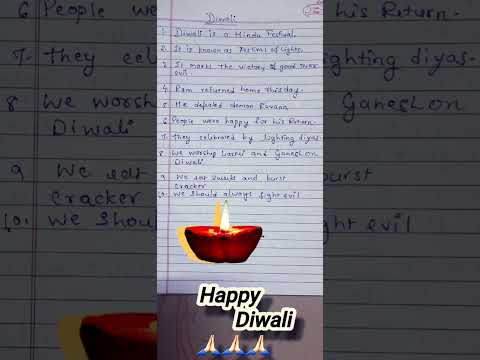 6 People we his Return.
7- They cel lighting diyas-
8 We worsh Ganesh on
Diwali
9 We eat burst
cracker
10. We shou ght evil
Diwali
1. Diwali is a Hindu Festival.
2. It is known as Festival of Lights.
3 It marks the victory of good over
evil
4. Ram returned home this day.
5. He defeated demon Ravana
6 People were happy for his Return.
7. They celebrated by lighting diyas.
8 We worship Laxmi and Ganesh on
Diwali
9 We eat sweets and burst
cracker
10. We should always fight evil
Happy
Diwali